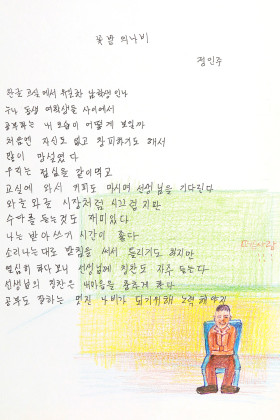 꽃밭의나비
정인주
한글 교실에서 유일한 남학생인 나
누나 동생 여학생들 사이에서
공부하는 내 모습이 어떻게 보일까
처음엔 자신도 없고 창피하기도 해서
많이 망설였다
우리는 점심을 같이먹고
교실에 와서 커피도 마시며 선생님을 기다린다
와글와글 시장처럼 시끄럽지만
수다를 듣는것도 재미있다
나는 받아쓰기 시간이 좋다
소리나는대로 받침을 써서 틀리기도 하지만
열심히 하다보니 선생님께 칭찬도 자주 듣는다
선생님의 칭찬은 내마음을 춤추게 한다
공부도 잘하는 멋진 나비가 되기위해 노력해야지